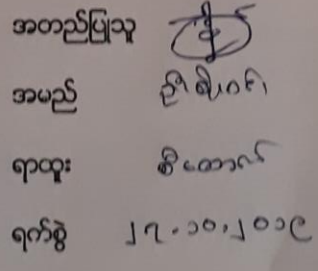 အတည်ပြုသူ
အမည် ဦးစိုးဝင်း
ရာထူး စီထောက်
ရက်စွဲ ၂၇.၁၀.၂၀၁၉